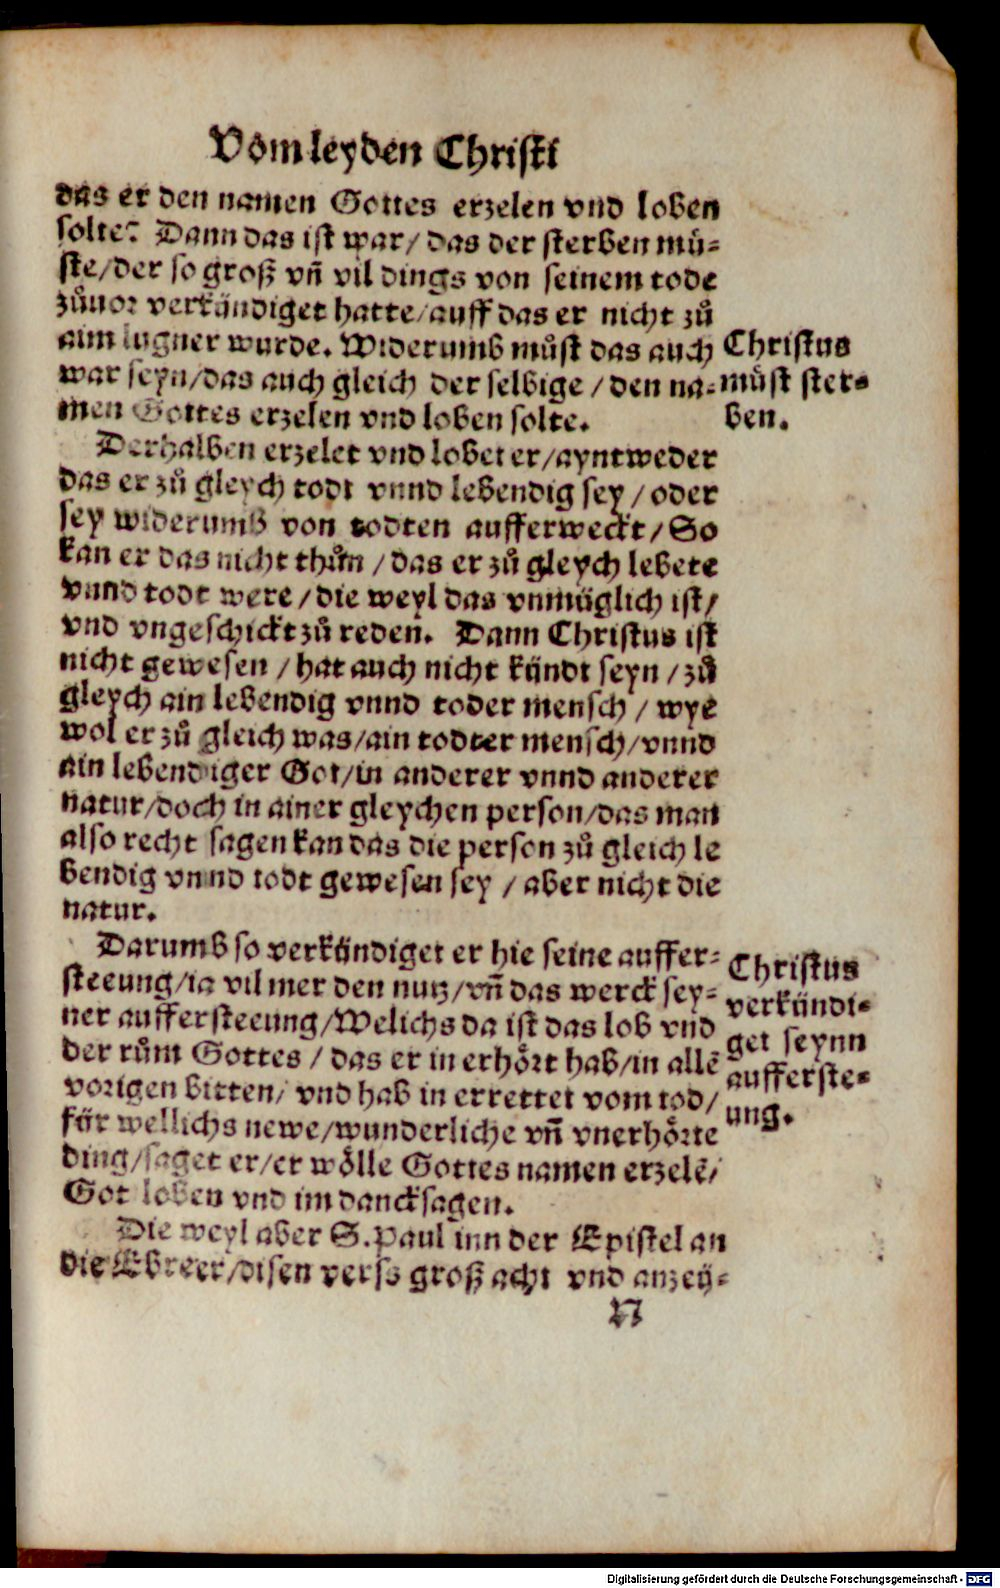 Vom leyden Christi
das er den namen Gottes erzelen vnd loben
solte? Dann das ist war/ das der sterben mü-
ste/der so groß vñ vil dings von seinem tode
zůuor verkündiget hatte/auff das er nicht zů
aim lugner wurde. Widerumb můst das auch
war seyn/das auch gleich der selbige / den na-
men Gottes erzelen vnd loben solte.
Christus
můst ster-
ben.
Derhalben erzelet vnd lobet er/ayntweder
das er zů gleych todt vnnd lebendig sey / oder
sey widerumb von todten aufferweckt/ So
kan er das nicht thůn / das er zů gleych lebete
vnnd todt were / die weyl das vnmüglich ist/
vnd vngeschickt zů reden. Dann Christus ist
nicht gewesen / hat auch nicht kündt seyn / zů
gleych ain lebendig vnnd toder mensch / wye
wol er zů gleich was/ain todter mensch/vnnd
ain lebendiger Got/in anderer vnnd anderer
natur/doch in ainer gleychen person/das man
also recht sagen kan das die person zů gleich le
bendig vnnd todt gewesen sey / aber nicht die
natur.
Darumb so verkündiget er hie seine auffer-
steeung/ia vil mer den nutz/vñ das werck sey-
ner aufferstee­ung/Welichs da ist das lob vnd
der rům Gottes / das er in erhört hab/in allē
vorigen bitten/ vnd hab in errettet vom tod/
für wellichs newe/wunderliche vñ vnerhörte
ding/saget er/er wölle Gottes namen erzelē/
Got loben vnd im dancksagen.
Christus
verkündi-
get seynn
aufferste-
ung.
Die weyl aber S. Paul inn der Epistel an
die Ebreer/disen verss groß acht vnd anzey-
N
Digitalisierung gefördert durch die Deutsche Forschungsgemeinschaft - DFG